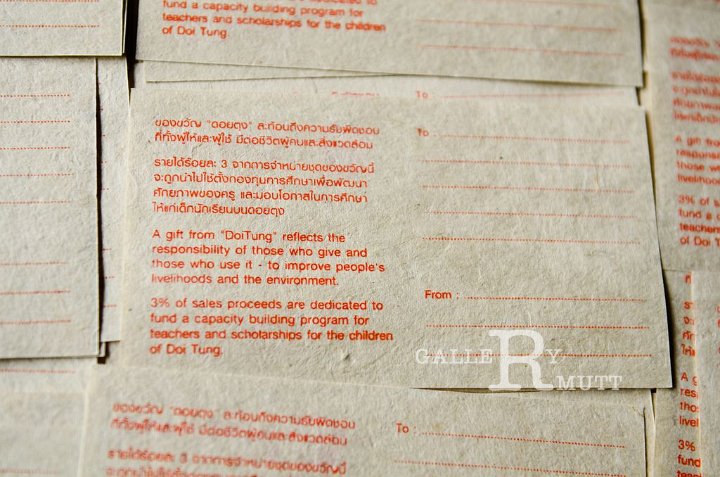 fund a capacity building program for
teachers and scholarships for the children
of Doi Tung.
To
ของขวัญ "ดอยตุง" สะท้อนถึงความรับผิดชอบ
ที่ทั้งผู้ให้และผู้ใช้ มีต่อชีวิตผู้คนและสิ่งแวดล้อม
รายได้ร้อยละ 3 จากการจำหน่ายชุดของขวัญนี้
จะถูกนำไปใช้ตั้งกองทุนการศึกษาเพื่อพัฒนา
ศักยภาพของครู และมอบโอกาสในการศึกษา
ให้แก่เด็กนักเรียนบนดอยตุง
A gift from "DoiTung" reflects the
responsibility of those who give and
those who use it - to improve people's
livelihoods and the environment.
3% of sales proceeds are dedicated to
fund a capacity building program for
teachers and scholarships for the children
of Doi Tung.
To :
From :
GALLERY
MUTT
ของขวัญ "ดอยตุง" สะท้อนถึงความรับผิดชอบ
ที่ทั้งผู้ให้และผู้ใช้ มีต่อชีวิตผู้คนและสิ่งแวดล้อม
รายได้ร้อยละ 3 จากการจำหน่ายชุดของขวัญนี้
To :
A gift
responsib
those wh
livelihoods
3% of s
fund a c
teachers
of Doi T